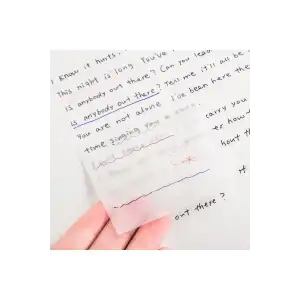 I know it hurts.
This night is long You've
is anybody out there? Can you lead
is anybody out there? Tell me it'll all be
You are not alone I've been here the
time singing you a
carry you
to how
hout th
it
out there?